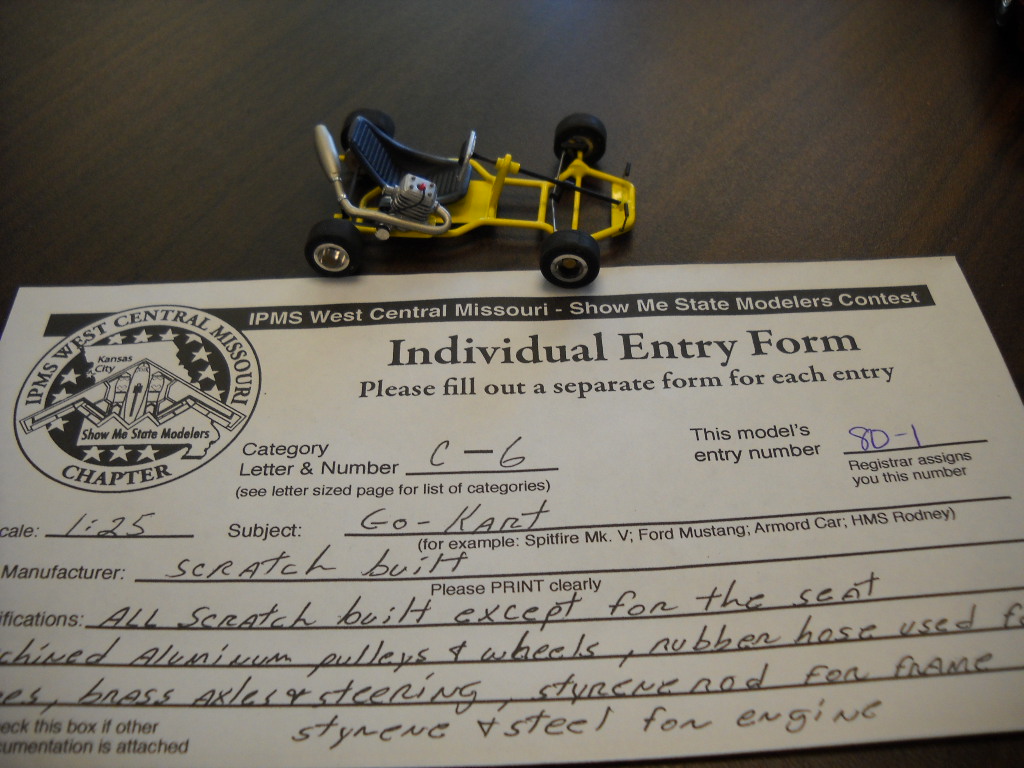 IPMS West Central Missouri - Show Me State Modelers Contest
IPMS WEST CENTRAL MISSOURI
Kansas
City
Show Me State Modelers
CHAPTER
Individual Entry Form
Please fill out a separate form for each entry
Category
Letter & Number C-6
(see letter sized page for list of categories)
This model's
entry number 80-1
Registrar assigns
you this number
cale: 1:25 Subject: Go-Kart
(for example: Spitfire Mk. V; Ford Mustang; Armord Car; HMS Rodney)
Manufacturer: Scratch built
Please PRINT clearly
ifications: ALL Scratch built except for the seat
chined Aluminum pulleys & wheels, rubber hose used fo
es, brass axles & steering, styrene rod for frame
styrene & steel for engine
eck this box if other
cumentation is attached